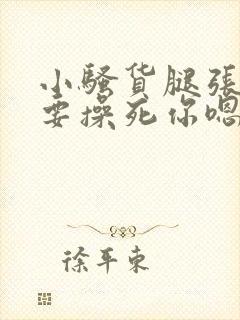 小騷货腿張
要操死你嗯
徐平東